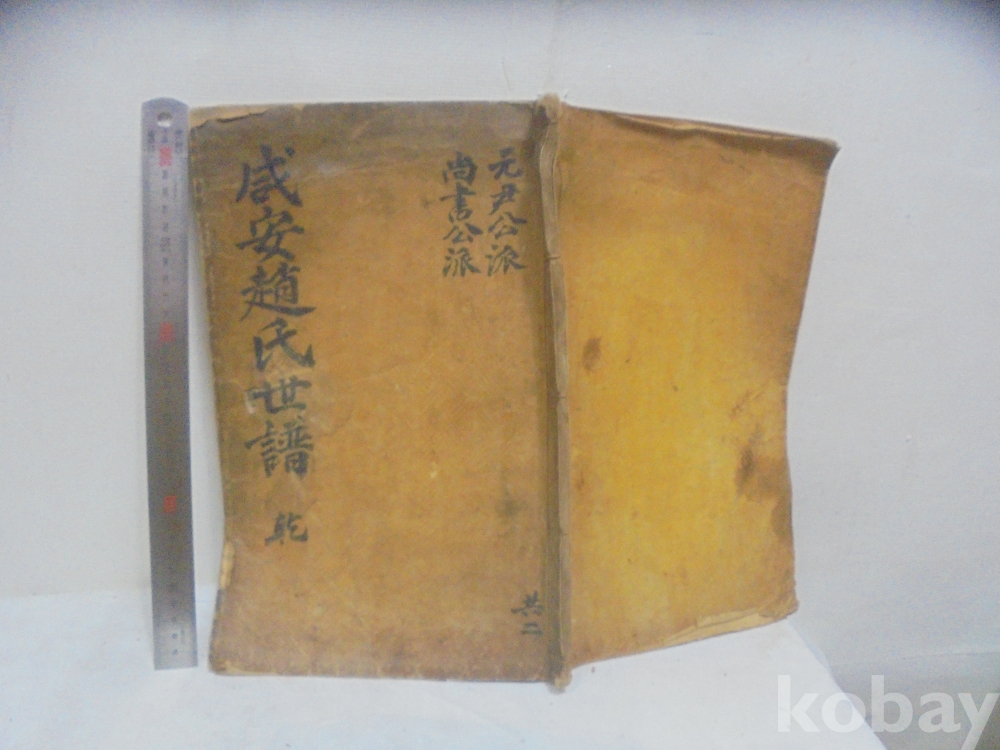 咸安趙氏世譜 乾
元尹公派
尚書公派
共二
kobay